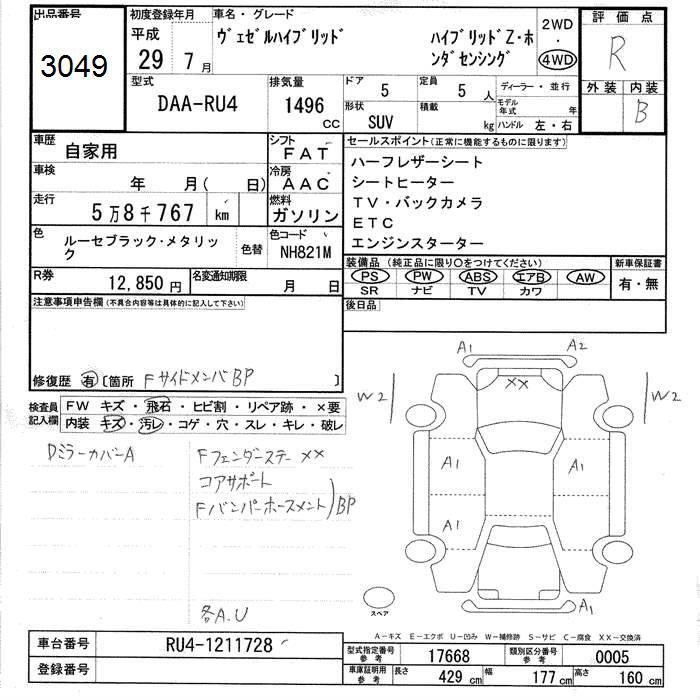 出品番号
3049
初度登録年月
平成
29 7 月
車名・グレード
ヴェゼルハイブリッド
ハイブリッドZ・ホ
ンダセンシング
2WD
・
4WD
評価点
R
外装 内装
B
型式
DAA-RU4
排気量
1496
CC
ドア
5
定員
5 人
形状
SUV
積載
kg
ディーラー・並行
モデル
年式 年
ハンドル 左・右
車歴
自家用
シフト
FAT
車検
年 月( 日)
冷房
AAC
走行
5万8千767 km
燃料
ガソリン
色
ルーセブラック・メタリッ
ク
色替
色コード
NH821M
R券
12,850 円
名変通知期限
月 日
セールスポイント(正常に機能するものに限ります)
ハーフレザーシート
シートヒーター
TV・バックカメラ
ETC
エンジンスターター
装備品(純正品に限り○をつけてください)
PS PW ABS エアB AW
SR ナビ TV カワ
新車保証書
有・無
後日品
注意事項申告欄(不具合内容等は具体的に記入して下さい)
修復歴 有 〔箇所 Fサイドメンバ BP 〕
検査員
記入欄
FW キズ・飛石・ヒビ割・リペア跡・×要
内装 キズ・汚レ・コゲ・穴・スレ・キレ・破レ
DミラーカバーA
Fフェンダーステー ××
コアサポート
Fバンパーホースメント) BP
各A.U
A1 A2
××
W2 W2
A1 A1
A1
A1
スペア
A-キズ E-エクボ U-凹み W-補修跡 S-サビ C-腐食 XX-交換済
車台番号
RU4-1211728
登録番号
型式指定番号
参考
17668
類別区分番号
参考
0005
車庫証明用
参考
長さ 429 cm 幅 177 cm 高さ 160 cm